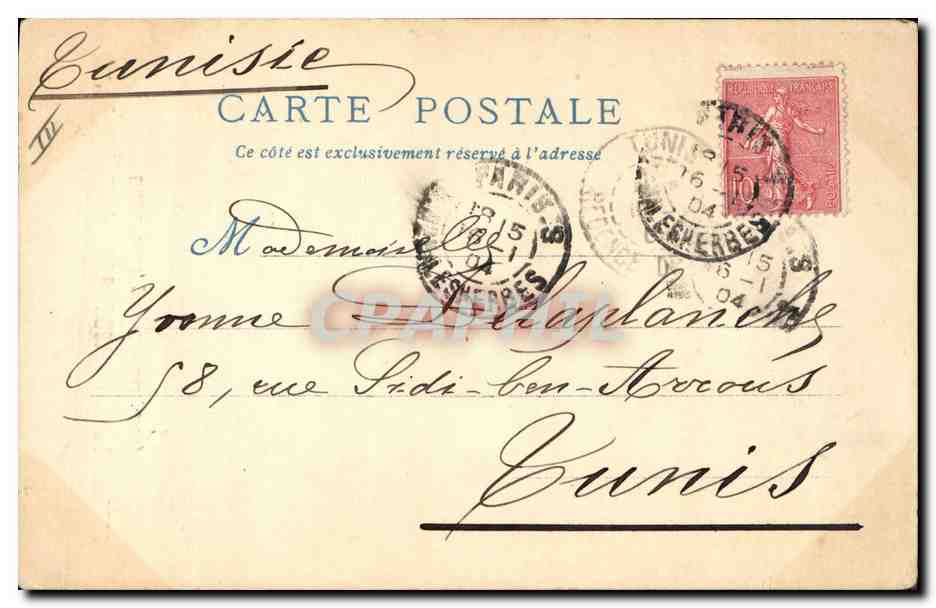 Tunisie
IV
CARTE POSTALE
Ce côté est exclusivement réservé à l'adresse
REPUBLIQUE FRANÇAISE
10
POSTES
TUNIS
PARIS-S
18 15
6-1
04
MALESHERBES
PARIS
15
16-1
04
MALESHERBES
15
6-1
04
Mademoiselle
Yvonne Delaplanche
58, rue Sidi-ben-Arrous
Tunis
CPARAMA